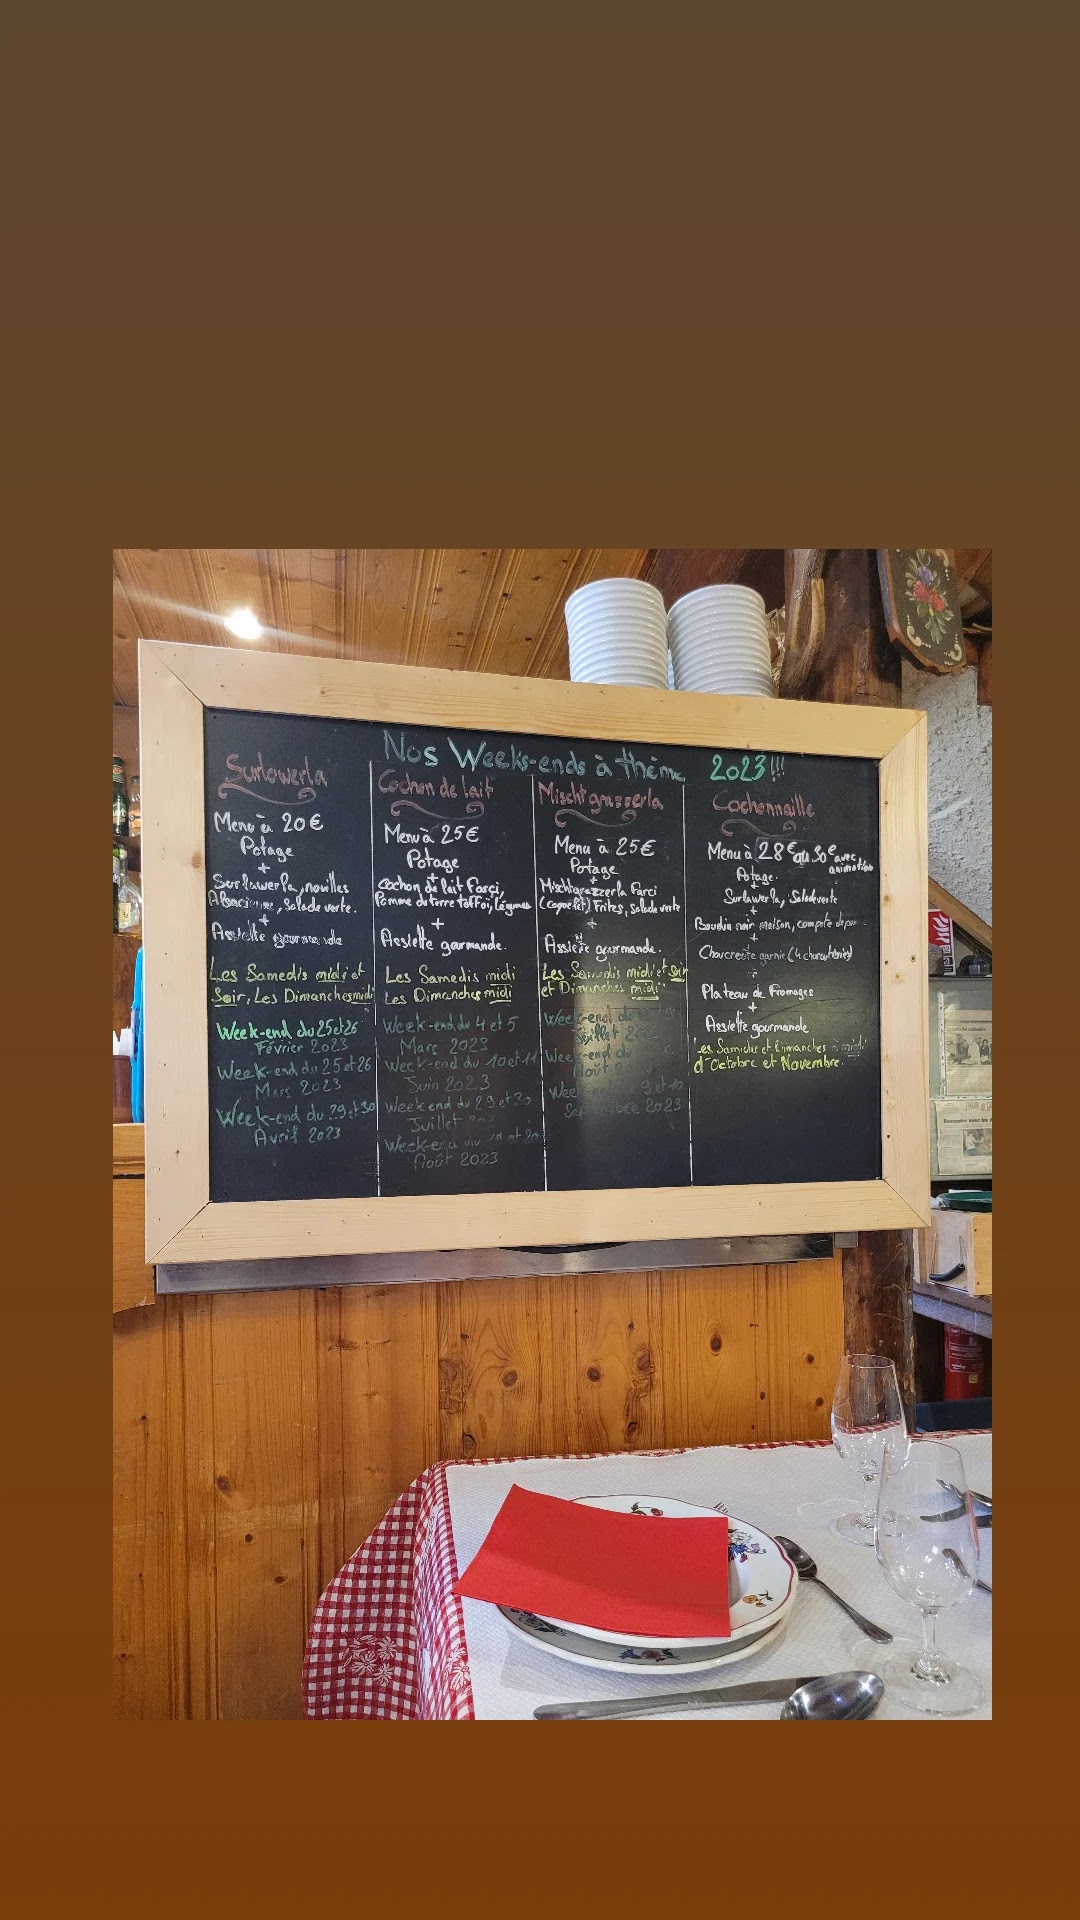 Nos Weeks-ends à thème 2023!!!
Surlawerla
Menu à 20€
Potage
+
Surlawerla, nouilles
Alsacienne, Salade verte.
+
Assiette gourmande
Les Samedis midi et
Soir, Les Dimanches midi
Week-end du 25 et 26
Février 2023
Week-end du 25 et 26
Mars 2023
Week-end du 29 et 30
Avril 2023
Cochon de lait
Menu à 25€
Potage
+
Cochon de lait Farçi,
Pomme de terre, Légumes
+
Assiette gourmande.
Les Samedis midi
Les Dimanches midi
Week-end du 4 et 5
Mars 2023
Week-end du 10 et 11
Juin 2023
Week end du 29 et 30
Juillet
Week-end du et
Août 2023
Mischtgrazzerla
Menu à 25€
Potage
+
Mischtgrazzerla Farci
(coquelet) Frites, salade verte
+
Assiette gourmande.
Les Samedis midi et Soir
et Dimanches midi
Week-end du
Juillet
Week-end du
Août
Week-end 9 et 10
Septembre 2023
Cochonnaille
Menu à 28€ ou 30€ avec
animation
Potage.
+
Surlawerla, Salade verte
+
Boudin noir maison, compote
+
Choucroute garnie (4 charcuteries)
+
Plateau de Fromages
+
Assiette gourmande
Les Samedis et Dimanches à midi
d'Octobre et Novembre.